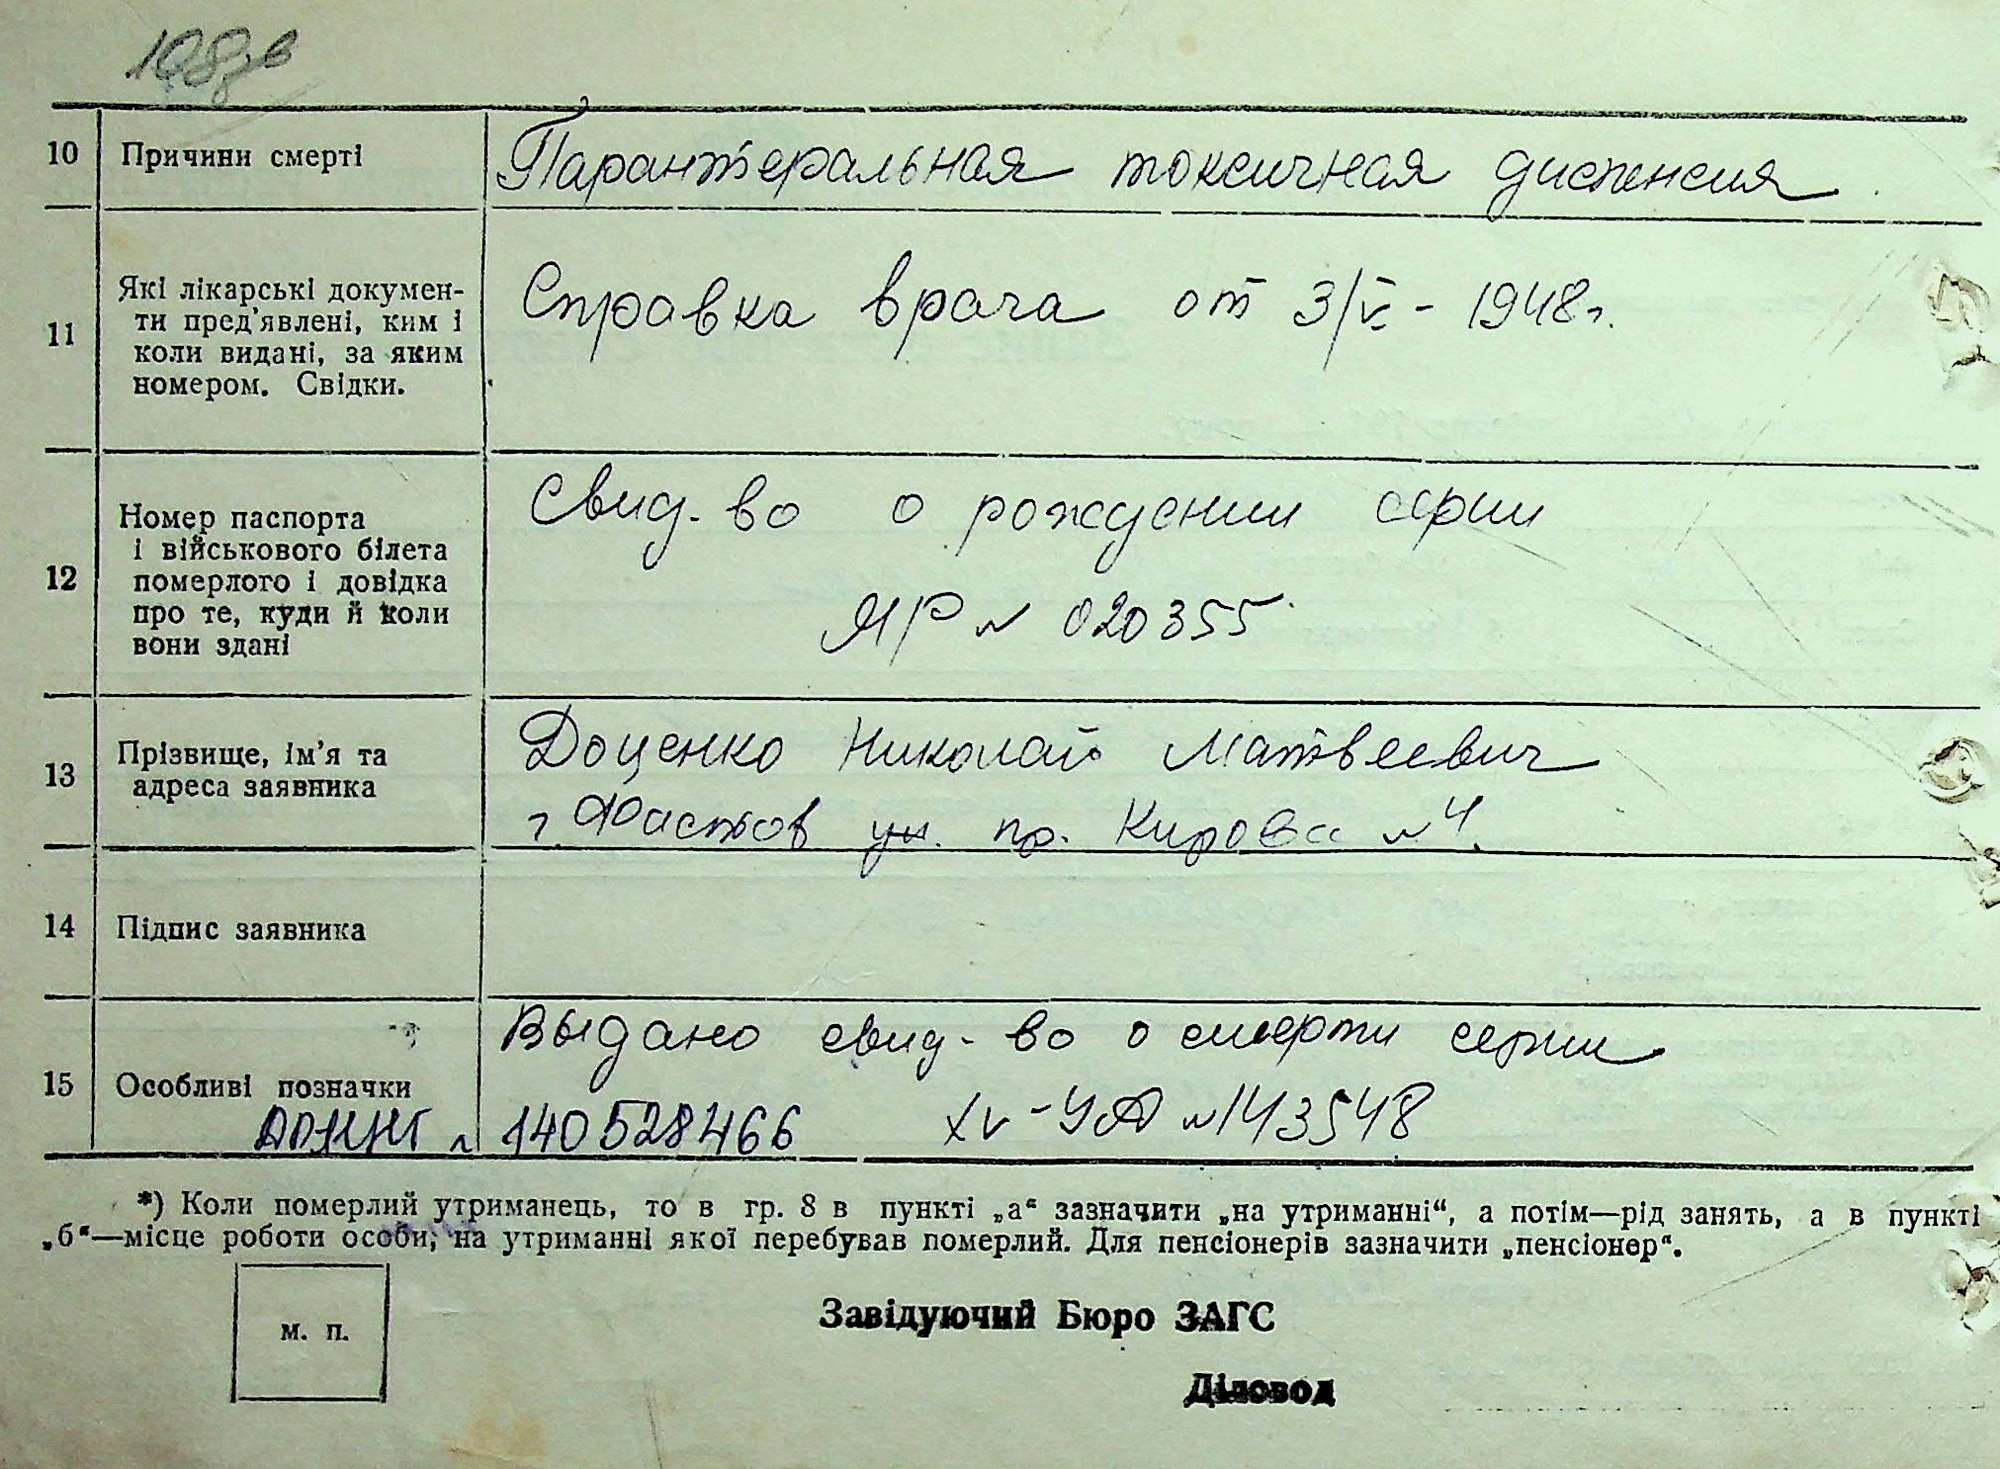 108 зв
10 Причини смерті Парантеральная токсичная диспенсия
11 Які лікарські докумен-
ти пред'явлені, ким і
коли видані, за яким
номером. Свідки.
Справка врача от 3/V - 1948 г.
12 Номер паспорта
і військового білета
померлого і довідка
про те, куди й коли
вони здані
Свид-во о рождении серии
ЯР № 020355
13 Прізвище, ім'я та
адреса заявника
Доценко Николай Матвеевич
г. Фастов ул. пр. Кирова № 4.
14 Підпис заявника
15 Особливі позначки
Выдано свид-во о смерти серии
XV-УА № 143548
№ 140528466
*) Коли померлий утриманець, то в гр. 8 в пункті „а“ зазначити „на утриманні“, а потім—рід занять, а в пункті
„б“—місце роботи особи, на утриманні якої перебував померлий. Для пенсіонерів зазначити „пенсіонер“.
м. п.
Завідуючий Бюро ЗАГС
Діловод